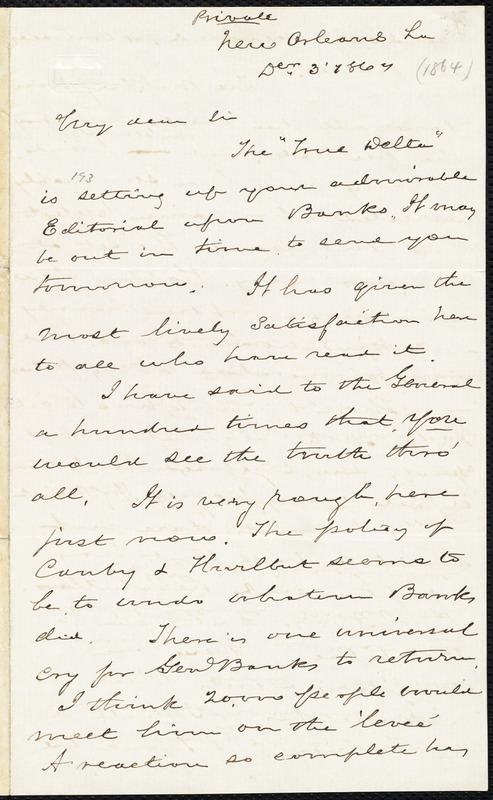 Private
New Orleans La
Decr 3' 1864 (1864)
My dear Sir
The "True Delta"
193
is setting up your admirable
Editorial upon Banks. It may
be out in time to send you
tomorrow. It has given the
most lively satisfaction here
to all who have read it.
I have said to the General
a hundred times that, You
would see the truth thro'
all. It is very rough, here
just now. The policy of
Canby & Hurlbut seems to
be to undo whatever Banks
did. There is one universal
cry for Genl Banks to return.
I think 20,000 people would
meet him on the 'levee'
A reaction so complete has